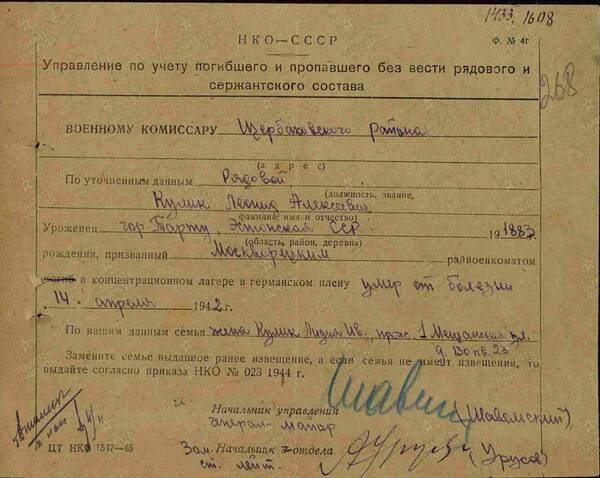 1433, 1608
НКО—СССР
Ф. № 4г
Управление по учету погибшего и пропавшего без вести рядового и
сержантского состава
268
ВОЕННОМУ КОМИССАРУ Щербаковского района
(адрес)
По уточненным данным Рядовой
(должность, звание,
Кулик Леонид Алексеевич
фамилия, имя и отчество)
Уроженец гор. Тарту, Эстонская ССР 1883
(область, район, деревня)
рождения, призванный Москворецким райвоенкоматом
погиб в концентрационном лагере в германском плену умер от болезни
14. апреля 1942 г.
По нашим данным семья жена Кулик Лидия Ив., прож. 1 Мещанская ул.
д. 130 кв. 23
Замените семье выданное ранее извещение, а если семья не имеет извещения, то
выдайте согласно приказа НКО № 023 1944 г.
Начальник управления
генерал-майор (Шавельский)
Зам. Начальник 7 отдела
ст. лейт. (Урусов)
ЦТ НКО 1547—45